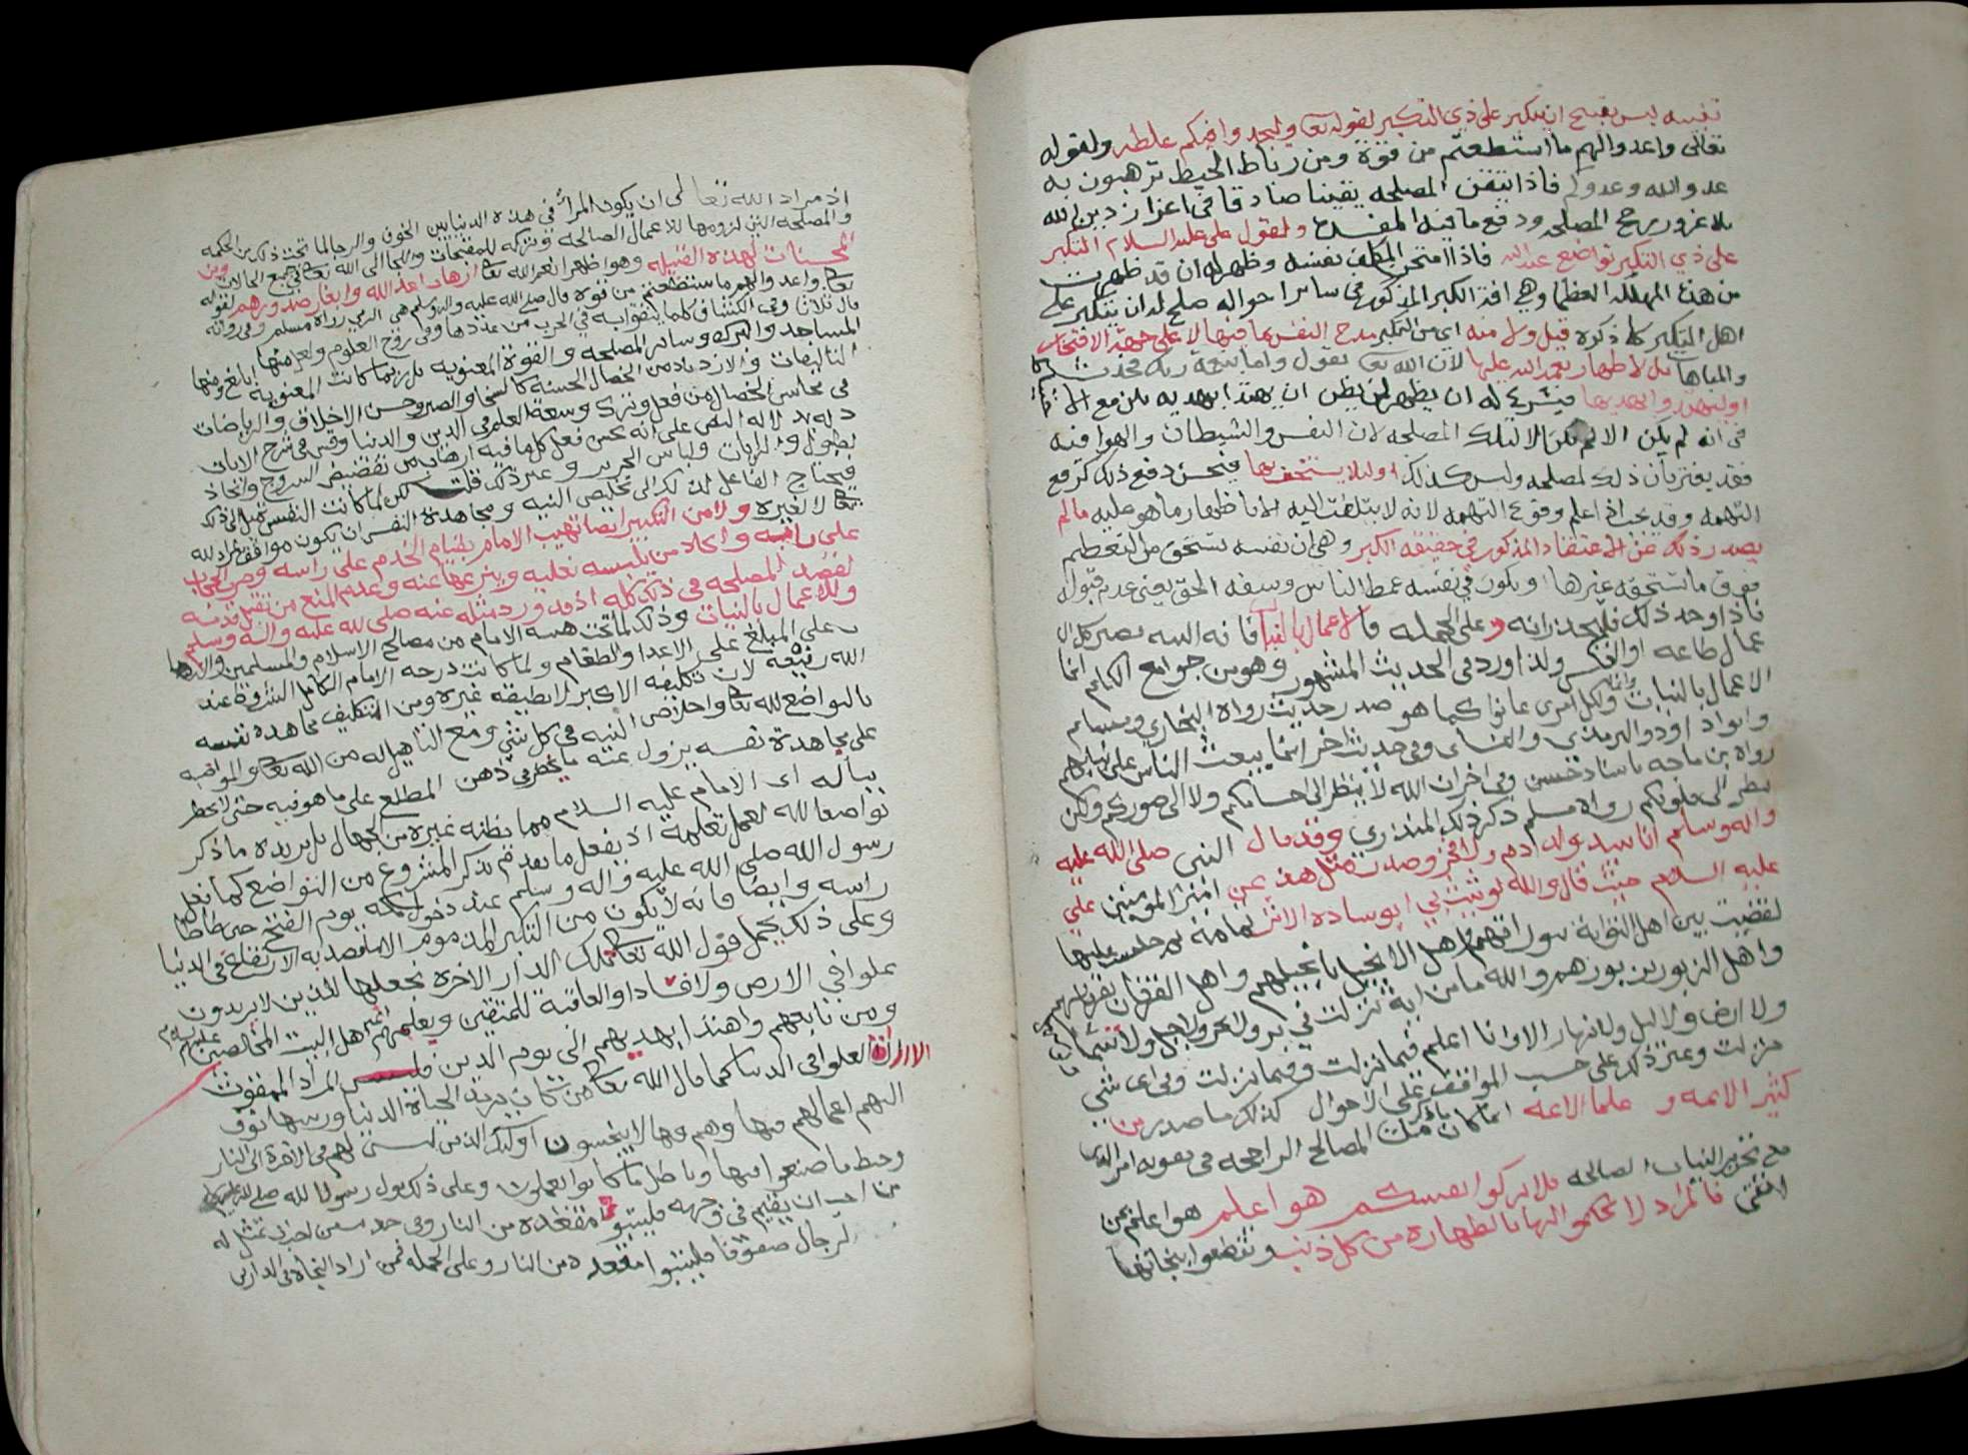 نفسه ليس يقبح ان يتكبر على ذي التكبر لقوله تعا وليجدوا فيكم غلظه ولقوله
تعالى واعدوا لهم ما استطعتم من قوة ومن رباط الخيل ترهبون به
عدو الله وعدوكم فاذا تيقن المصلحه يقينا صادقا في اعزاز دين الله
بلا غرور رجح المصلحه ودفع ما فيه المفسدة ولقول علي عليه السلام التكبر
على ذي التكبر تواضع عند الله فاذا امتحن المكلف نفسه وظهر له ان قد طهرت
من هذه المهلكه العظما وهي افة الكبر المذكورة في ساير احواله صلح له ان يتكبر على
اهل التكبر كما ذكره قبل ولا منه اي من التكبر مدح النفس بما فيها لا على جهة الافتخار
والمباهات بل لاظهار نعمة الله عليها لان الله تعا يقول واما بنعمة ربك فحدث
او ليهتدوا بهديها فيشرع له ان يظهر لمن يظن ان يهتدا بهديه
في انه لم يكن الا لتلك المصلحه لان النفس والشيطان والهوا فيه
فقد يغتر بان ذلك لمصلحه وليس كذلك او لئلا يستخف بها فيحسن دفع ذلك كرفع
التهمه وقد يجب اذا علم وقوع التهمه لانه لا يلتفت اليه الا باظهار ما هو عليه ما لم
يصدر ذلك عن الاعتقاد المذكور في حقيقه الكبر وهي ان نفسه تستحق من التعظيم
فوق ما تستحقه غيرها ويكون في نفسه غمط الناس وسفه الحق يعني عدم قبوله
فاذا وجد ذلك فليحذر انه وعلى الجمله فالاعمال بالنيات فانه النيه تصير كل ال
عمال طاعه او العكس ولذا ورد في الحديث المشهور وهو من جوامع الكلم انما
الاعمال بالنيات ولكل امرى ما نوى كما هو صدر حديث رواه البخاري ومسلم
وابو داوود والترمذي والنساى وفي حديث اخر انما يبعث الناس على نياتهم
رواه بن ماجه باسناد حسن وفي اخر ان الله لا ينظر الى اجسامكم ولا الى صوركم ولكن
ينظر الى قلوبكم رواه مسلم ذكر ذلك المنذري وقد قال النبي صلى الله عليه
واله وسلم انا سيد ولد ادم ولا فخر وصدر مثل هذا عن امير المومنين علي
عليه السلام حيث قال والله لو ثنيت لي الوساده
لقضيت بين اهل التوراية بتوراتهم واهل الانجيل بانجيلهم واهل الفرقان بفرقانهم
واهل الزبور بزبورهم والله ما من اية نزلت في بر ولا بحر ولا جبل ولا سما
ولا ارض ولا ليل ولا نهار الا وانا اعلم فيما نزلت وفيمن نزلت وفي اى شي
نزلت وغير ذلك على حسب المواقف على الاحوال كذلك ما صدر من
كثير الايمه و علما الامه انما كان من المصالح الراجحه في تقويه امر الدين
مع تحرير النيات الصالحه فلا تزكوا انفسكم هو اعلم هو اعلم بمن
اتقى فالمراد لا تحكموا لها بالطهاره من كل ذنب وتقطعوا بنجاتها
اذ مراد الله تعالى ان يكون المرأ في هذه الدنيا بين الخوف والرجا لما تحت ذلك من الحكمه
والمصلحه التي لزومها للاعمال الصالحه وتركه للمقبحات والالتجا الى الله تعا في جميع الحالات ومن
المحسنات لهذه القبيله وهو اظهار نعم الله تعا ارهاب اعدا الله وايغار صدورهم لقوله
تعا واعدوا لهم ما استطعتم من قوة قال صلى الله عليه واله وسلم هي الرمي رواه مسلم وفي رواية
قال ثلاثا وفي الكشاف كلما يتقوا به في الحرب من عددها وفي روح العلوم
المساجد والبرك وساير المصلحه والقوة المعنويه بل ربما كانت المعنويه ابلغ ومنها
التاليفات والازدياد من الخصال الحسنه كالسخا والصبر وحسن الاخلاق والرياضات
في محاسن الخصال من فعل وترك وسعة العلم في الدين والدنيا وفي شرح الايات
دلاله النص على انه يحسن فعل كلما فيه ارهاب من تفضيض السروج واتخاذ
الطبول والرايات ولباس الحرير وغير ذلك قلت لكن لما كانت النفس تميل الى ذلك
فيحتاج الفاعل لذلك الى تخليص النيه ومجاهدة النفس ان يكون موافق لمراد الله
تعا لا لغيره ولا من التكبر ايضا تهيب الامام بقيام الخدم على راسه وضرب الحجاب
على بابه واخلا من يلبسه نعليه وينزعها عنه وعدم المنع من تقبيل قدمه
لقصد المصلحه في ذلك كله اذ قد ورد مثله عنه صلى الله عليه واله وسلم
وللاعمال بالنيات وذلك لما تحت هيبة الامام من مصالح الاسلام والمسلمين
على المبلغ على الاعدا والطغام ولما كانت درجه الامام الكامل الشروط عند
الله رفيعه لان تكليفه الاكبر لا يطيقه غيره ومن التكليف مجاهدة نفسه
بالتواضع لله تعا واخلاص النيه في كل شي ومع التاهيل له من الله تعا والمواضبه
على مجاهدة نفسه يزول عنه ما يخطر في ذهن المطلع على ما هو فيه حتى لا يخطر
بباله اى الامام عليه السلام مما يظنه غيره من الجهال بل يزيده ما ذكر
تواضعا لله لعمل تعلمه اذ يفعل ما تقدم ذكر المشروع من التواضع كما فعل
رسول الله صلى الله عليه واله وسلم عند دخول مكه يوم الفتح حتى طاطا
راسه وايضا فانه لا يكون من التكبر المذموم الا ما قصد به الارتفاع في الدنيا
وعلى ذلك يحمل قول الله تعا تلك الدار الاخرة نجعلها للذين لا يريدون
علوا في الارض ولا فسادا والعاقبة للمتقين ويعلمهم اهل البيت المخلصين عليهم السلام
ومن تابعهم واهتدا بهديهم الى يوم الدين فليس المراد الممقوت
الا ارادة العلو في الدنيا كما قال الله تعا من كان يريد الحياة الدنيا وزينتها نوف
اليهم اعمالهم فيها وهم فيها لا يبخسون اوليك الذين ليس لهم في الاخرة الا النار
وحبط ما صنعوا فيها وباطل ما كانوا يعملون وعلى ذلك قول رسول الله صلى الله عليه
من احب ان يقيم في وجهه فليتبوا مقعده من النار وفي حديث اخر ان تمثل له
الرجال صفوفا فليتبوا مقعده من النار وعلى الجمله فمن اراد النجاة في الدارين